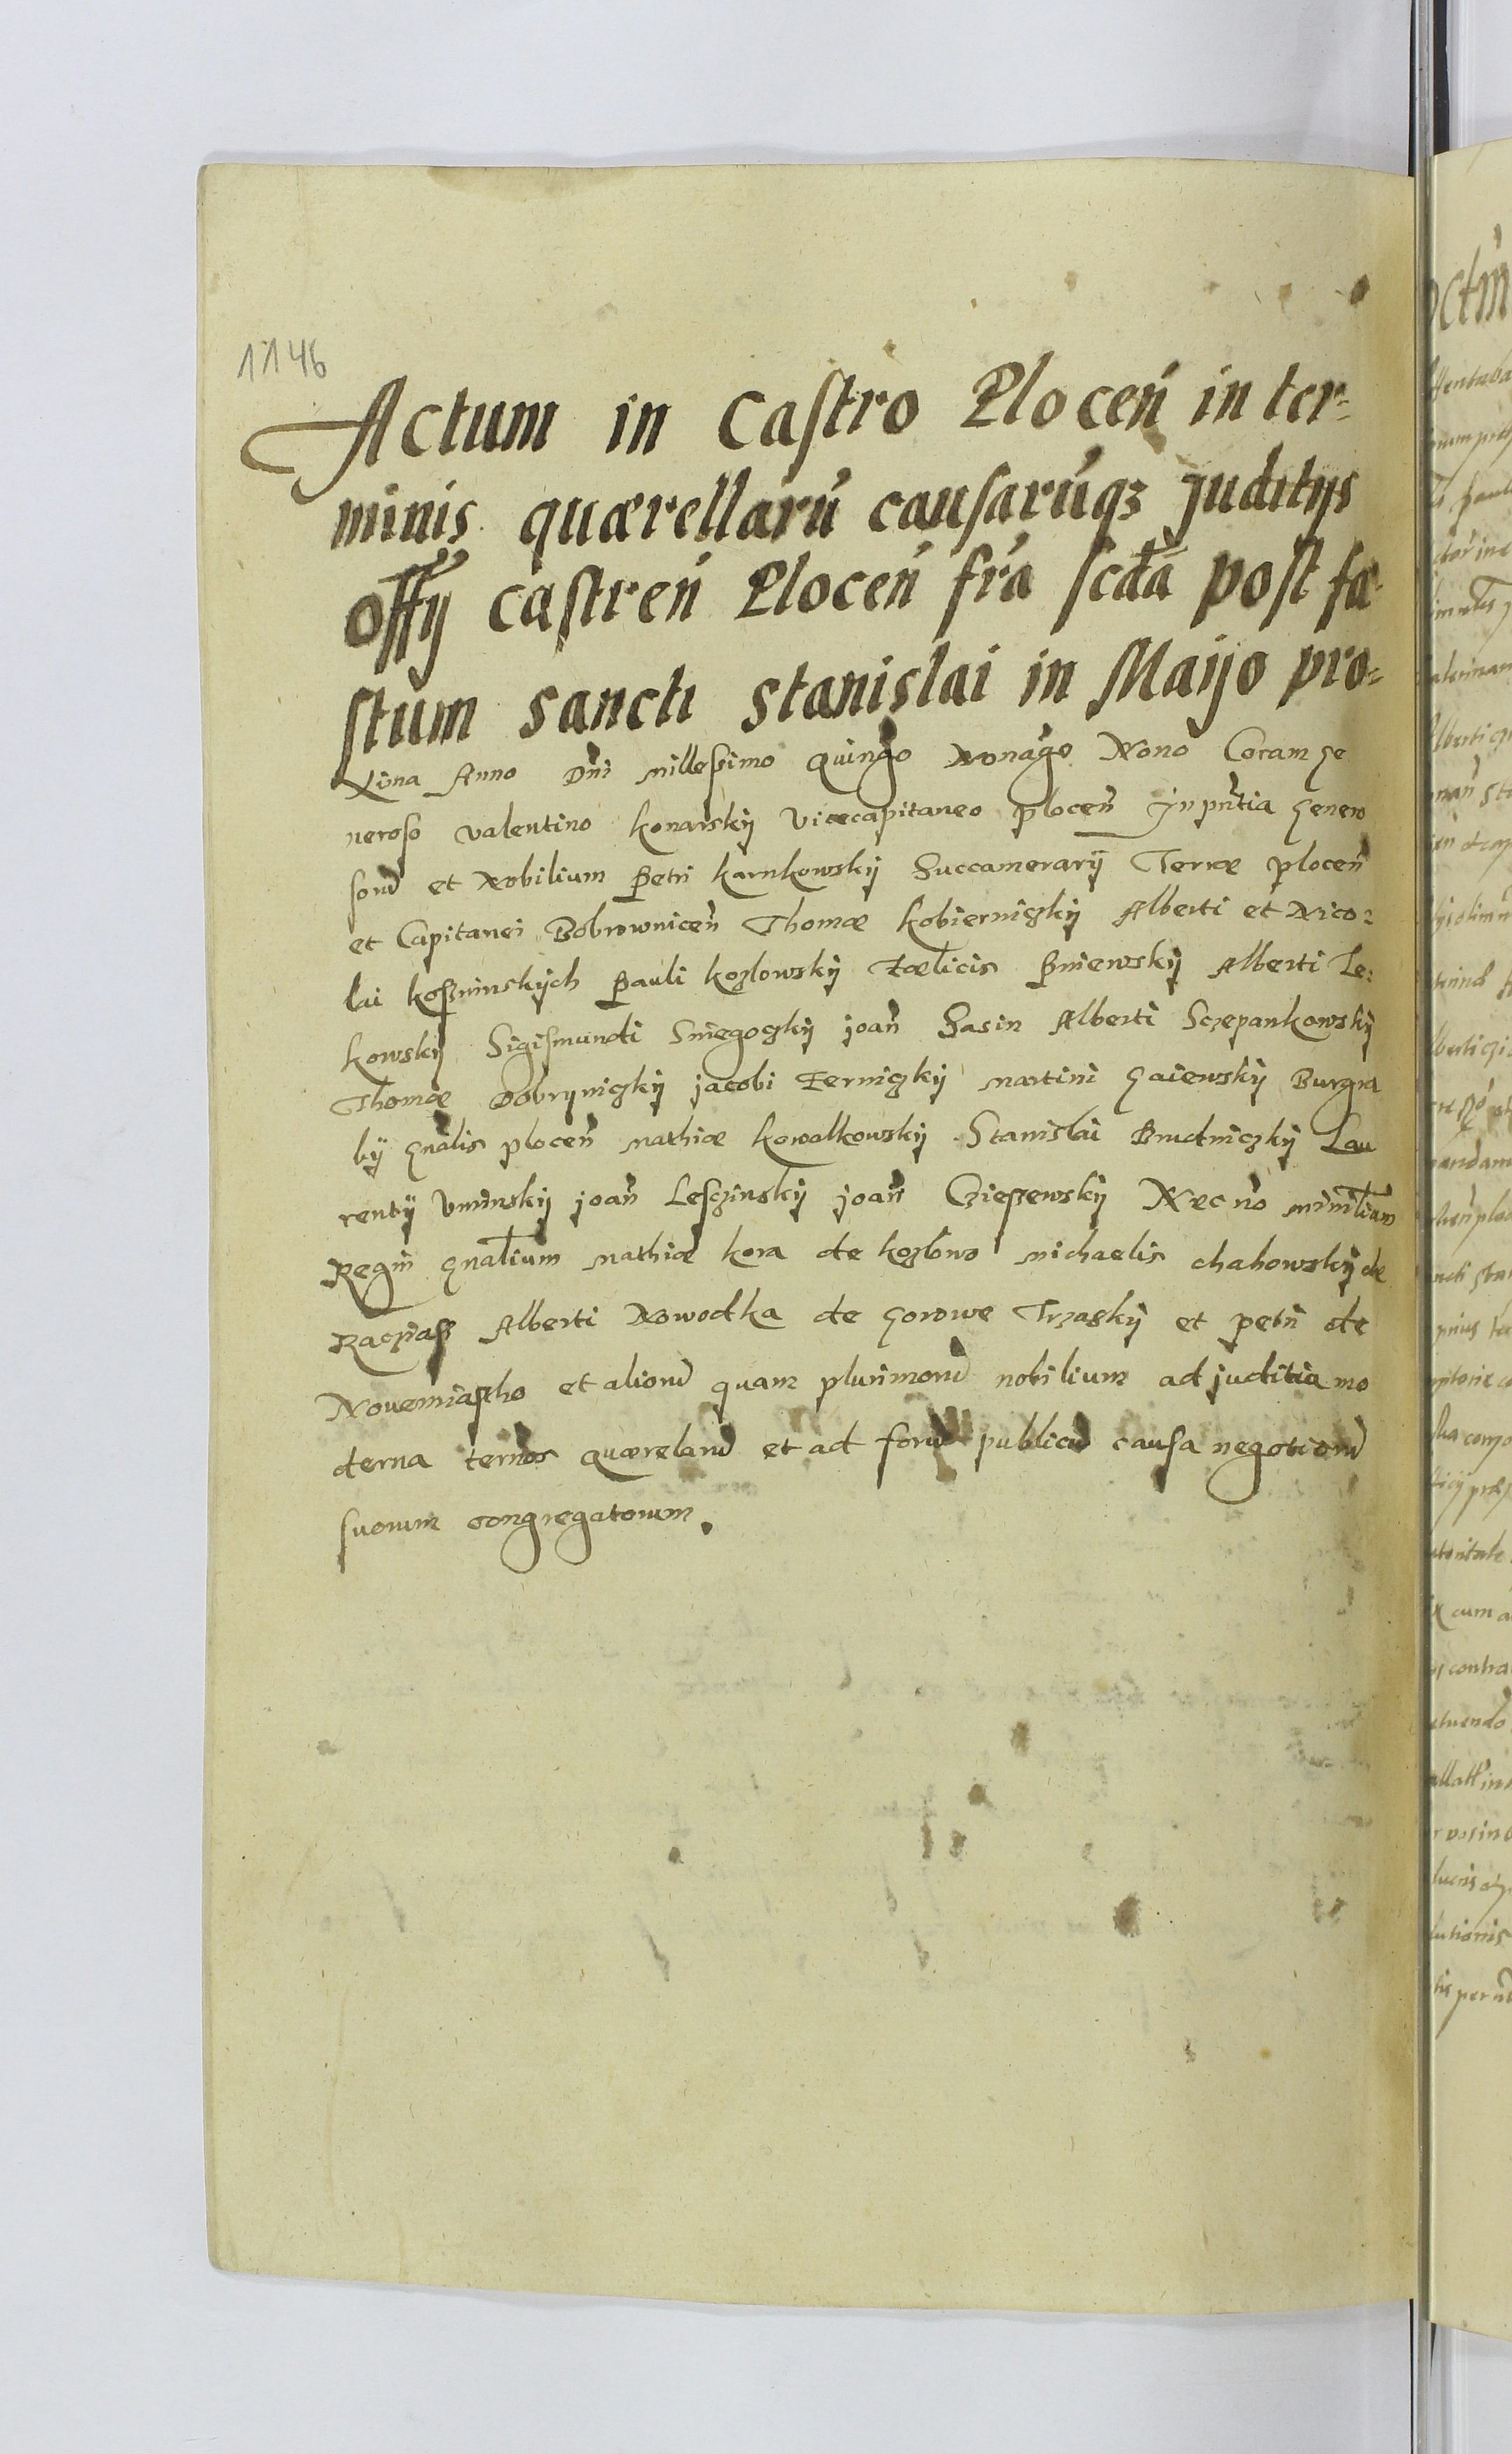 1146
Actum in Castro Plocen̄ in ter=
minis quærellarū causarūqз Juditijs
Offij castren̄ Plocen̄ fr̄a scd̄a post fæ-
stum Sancti Stanislai in Maijo pro=
xima Anno Dn̄i millesimo Quingo Nonago Nono Coram Ge
neroso Valentino Konarskij Vicecapitaneo plocen̄ In pn̄tia Genero
sorū et Nobilium Petri Karnkowskij Succamerarij Terræ plocen̄
et Capitanei Bobrownicen̄ Thomæ Kobierniczkij Alberti et Nico=
lai Kossminskijch Pauli Kozlowskij Fælicis Bniewskij Alberti Le=
kowskij Sigismundi Sniegoczkij joan̄ Sasin Alberti Sczepankowskij
Thomæ Dobrzyniczkij jacobi Zerniczkij Martini Gaiewskij Burgra
bij Gnālis plocen̄ Mathiæ Kowalkowskij Stanislai Brudniczkij Lau
rentij Uminskij joan̄ Lesczinskij joan̄ Cziessewskij Nec nō min̄rlium
Regin̄ Gnālium Mathiæ Kora de Kozlowo Michaelis chabowskij de
Racziass Alberti Nowodka de Gorowe Trzaskij et petri de
Novemiastho et aliorū quam plurimorū nobilium ad juditia mo
derna ternōs quærelarū et ad forū publicū causa negotiorū
suorum congregatorum.